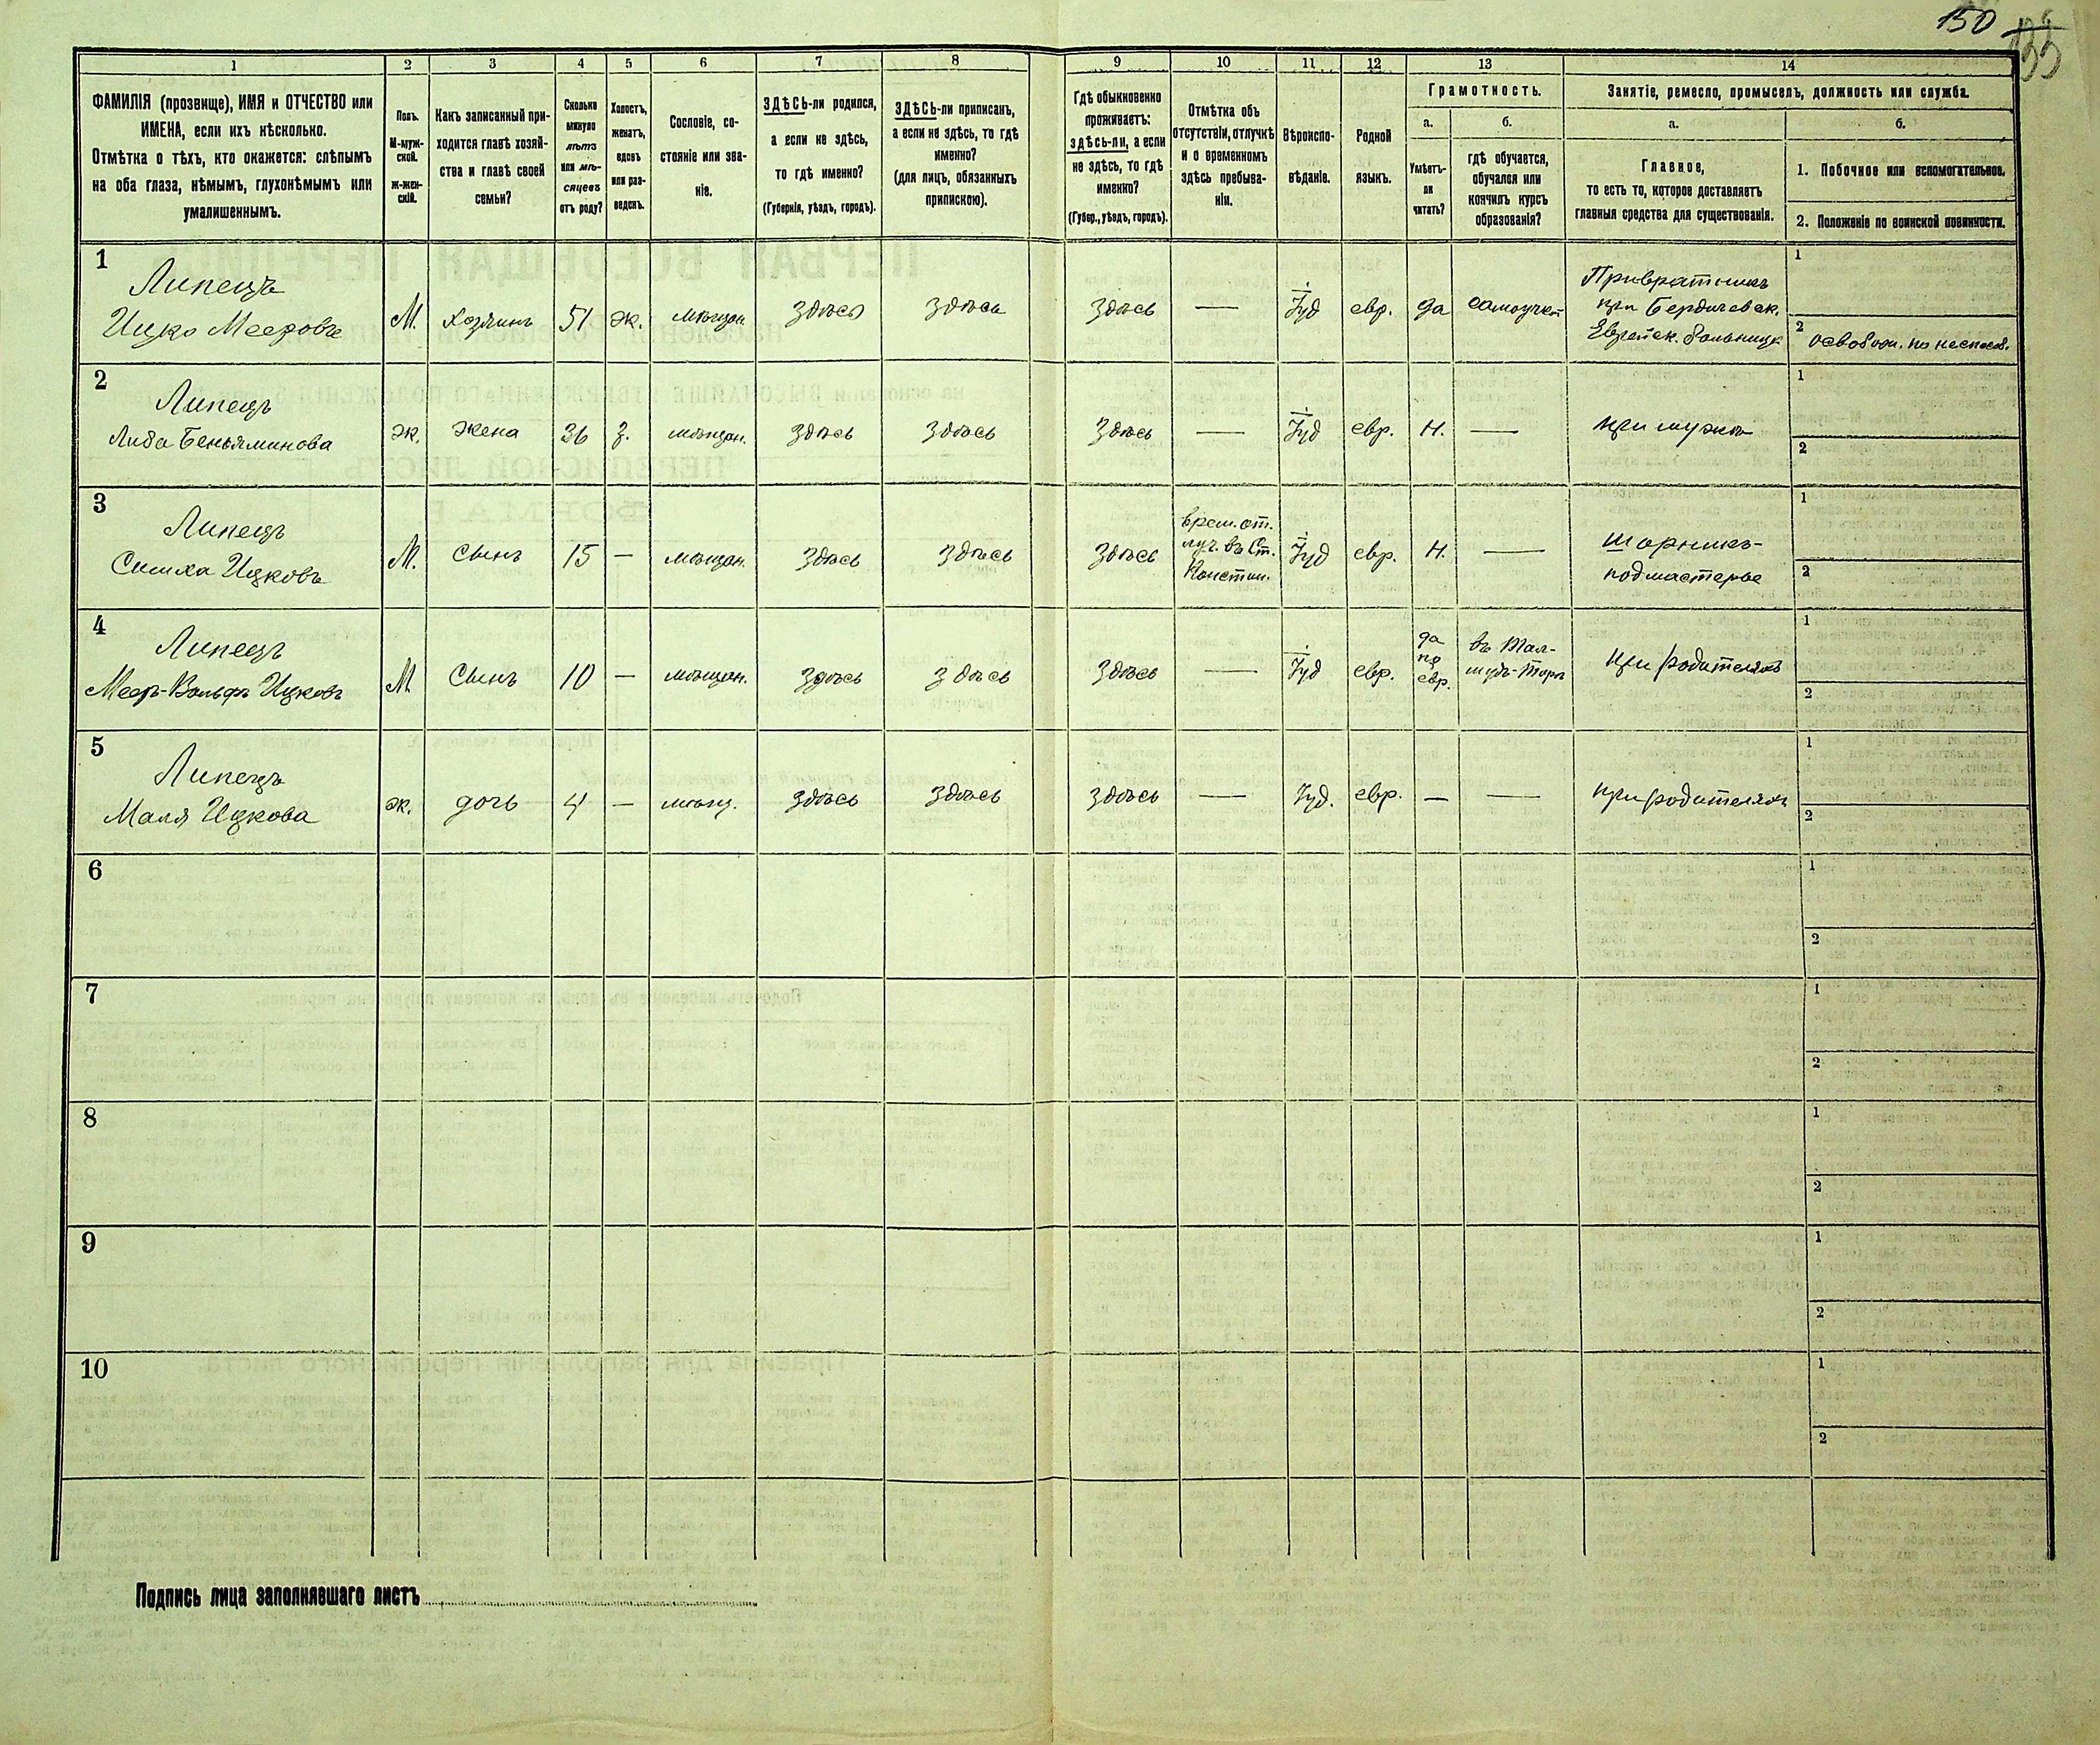 150
133
1
2
3
4
5
6
7
8
9
10
11
12
13
14
ФАМИЛІЯ (прозвище), ИМЯ и ОТЧЕСТВО или
ИМЕНА, если ихъ нѣсколько.
Отмѣтка о тѣхъ, кто окажется: слѣпымъ
на оба глаза, нѣмымъ, глухонѣмымъ или
умалишеннымъ.
Полъ.
М-муж-
ской.
ж-жен-
скій.
Какъ записанный при-
ходится главѣ хозяй-
ства и главѣ своей
семьи?
Сколько
минуло
лѣтъ
или мѣ-
сяцевъ
отъ роду?
Холостъ,
женатъ,
вдовъ
или раз-
веденъ.
Сословіе, со-
стояніе или зва-
ніе.
ЗДѢСЬ-ли родился,
а если не здѣсь,
то гдѣ именно?
(Губернія, уѣздъ, городъ).
ЗДѢСЬ-ли приписанъ,
а если не здѣсь, то гдѣ
именно?
(для лицъ, обязанныхъ
припискою).
Гдѣ обыкновенно
проживаетъ:
здѣсь-ли, а если
не здѣсь, то гдѣ
именно?
(Губер., уѣздъ, городъ).
Отмѣтка объ
отсутствіи, отлучкѣ
и о временномъ
здѣсь пребыва-
ніи.
Вѣроиспо-
вѣданіе.
Родной
языкъ.
Грамотность.
а.
Умѣетъ-
ли
читать?
б.
гдѣ обучается,
обучался или
кончилъ курсъ
образованія?
Занятіе, ремесло, промыселъ, должность или служба.
а.
Главное,
то есть то, которое доставляетъ
главныя средства для существованія.
б.
1. Побочное или вспомогательное.
2. Положеніе по воинской повинности.
1
Липецъ
Ицко Мееровъ
М.
Хозяинъ
51
ж.
мѣщан.
Здѣсь
Здѣсь
Здѣсь
—
Іуд
евр.
да
самоучкой
Привратникъ
при Бердичевск.
Еврейск. больницѣ
1
2 освобожд. по неспособ.
2
Липецъ
Либа Беньяминова
ж.
жена
36
з.
мѣщан.
Здѣсь
Здѣсь
Здѣсь
—
Іуд
евр.
Н.
—
при мужѣ
1
2
3
Липецъ
Симха Ицковъ
М.
Сынъ
15
—
мѣщан.
Здѣсь
Здѣсь
Здѣсь
врем. от-
луч. въ Ст.
Констан.
Іуд
евр.
Н.
—
шорникъ-
подмастерье
1
2
4
Липецъ
Меер-Вольфъ Ицковъ
М
Сынъ
10
—
мѣщан.
Здѣсь
Здѣсь
Здѣсь
—
Іуд
евр.
да
по
евр.
въ Тал-
мудъ-Торѣ
при родителяхъ
1
2
5
Липецъ
Маля Ицкова
ж.
дочь
4
—
мѣщ.
Здѣсь
Здѣсь
Здѣсь
—
Іуд.
евр.
—
—
при родителяхъ
1
2
6
1
2
7
1
2
8
1
2
9
1
2
10
1
2
Подпись лица заполнявшаго листъ